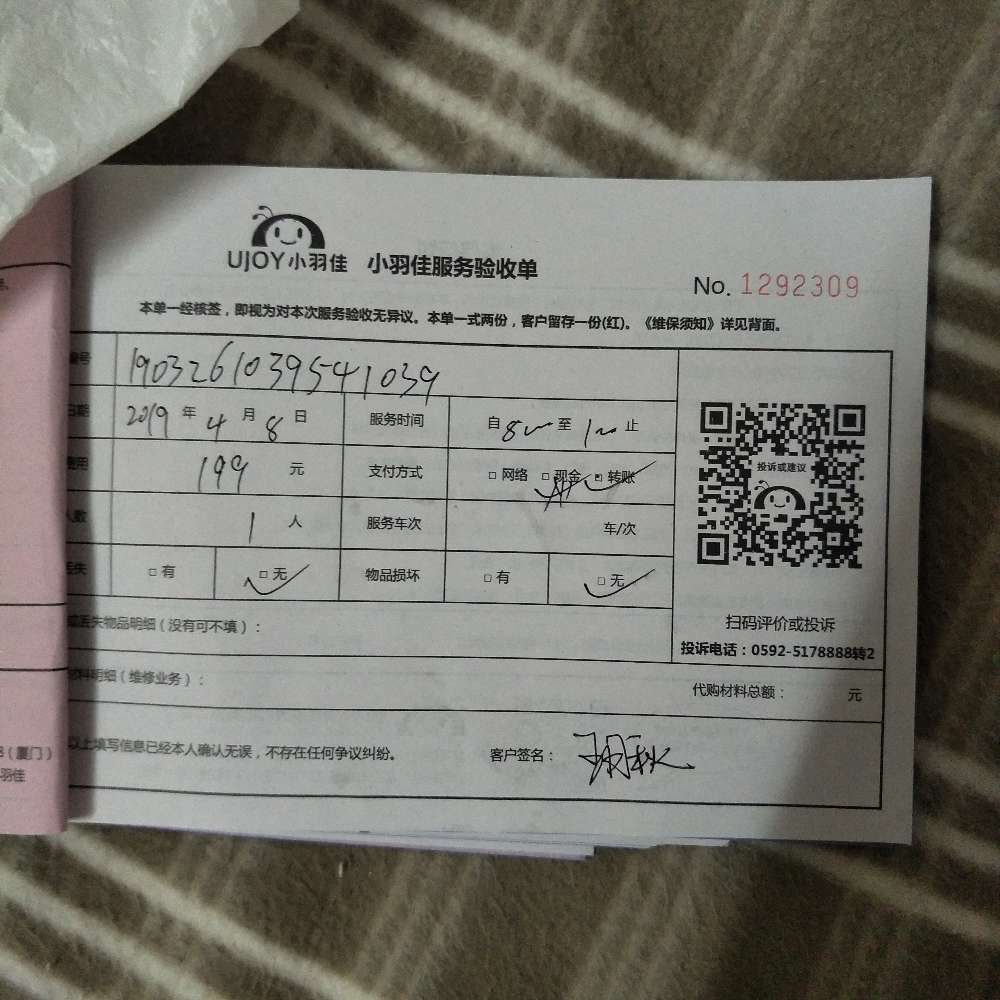 UJOY小羽佳 小羽佳服务验收单
No. 1292309
本单一经核签，即视为对本次服务验收无异议。本单一式两份，客户留存一份(红)。《维保须知》详见背面。
编号 1903261039541039
日期 2019 年 4 月 8 日 服务时间 自 8 至 1 止
费用 199 元 支付方式 □ 网络 □ 现金 □ 转账
人数 1 人 服务车次 车/次
丢失 □ 有 □ 无 物品损坏 □ 有 □ 无
投诉或建议
扫码评价或投诉
投诉电话：0592-5178888转2
或丢失物品明细（没有可不填）：
材料明细（维修业务）： 代购材料总额： 元
以上填写信息已经本人确认无误，不存在任何争议纠纷。 客户签名：
（厦门）
羽佳